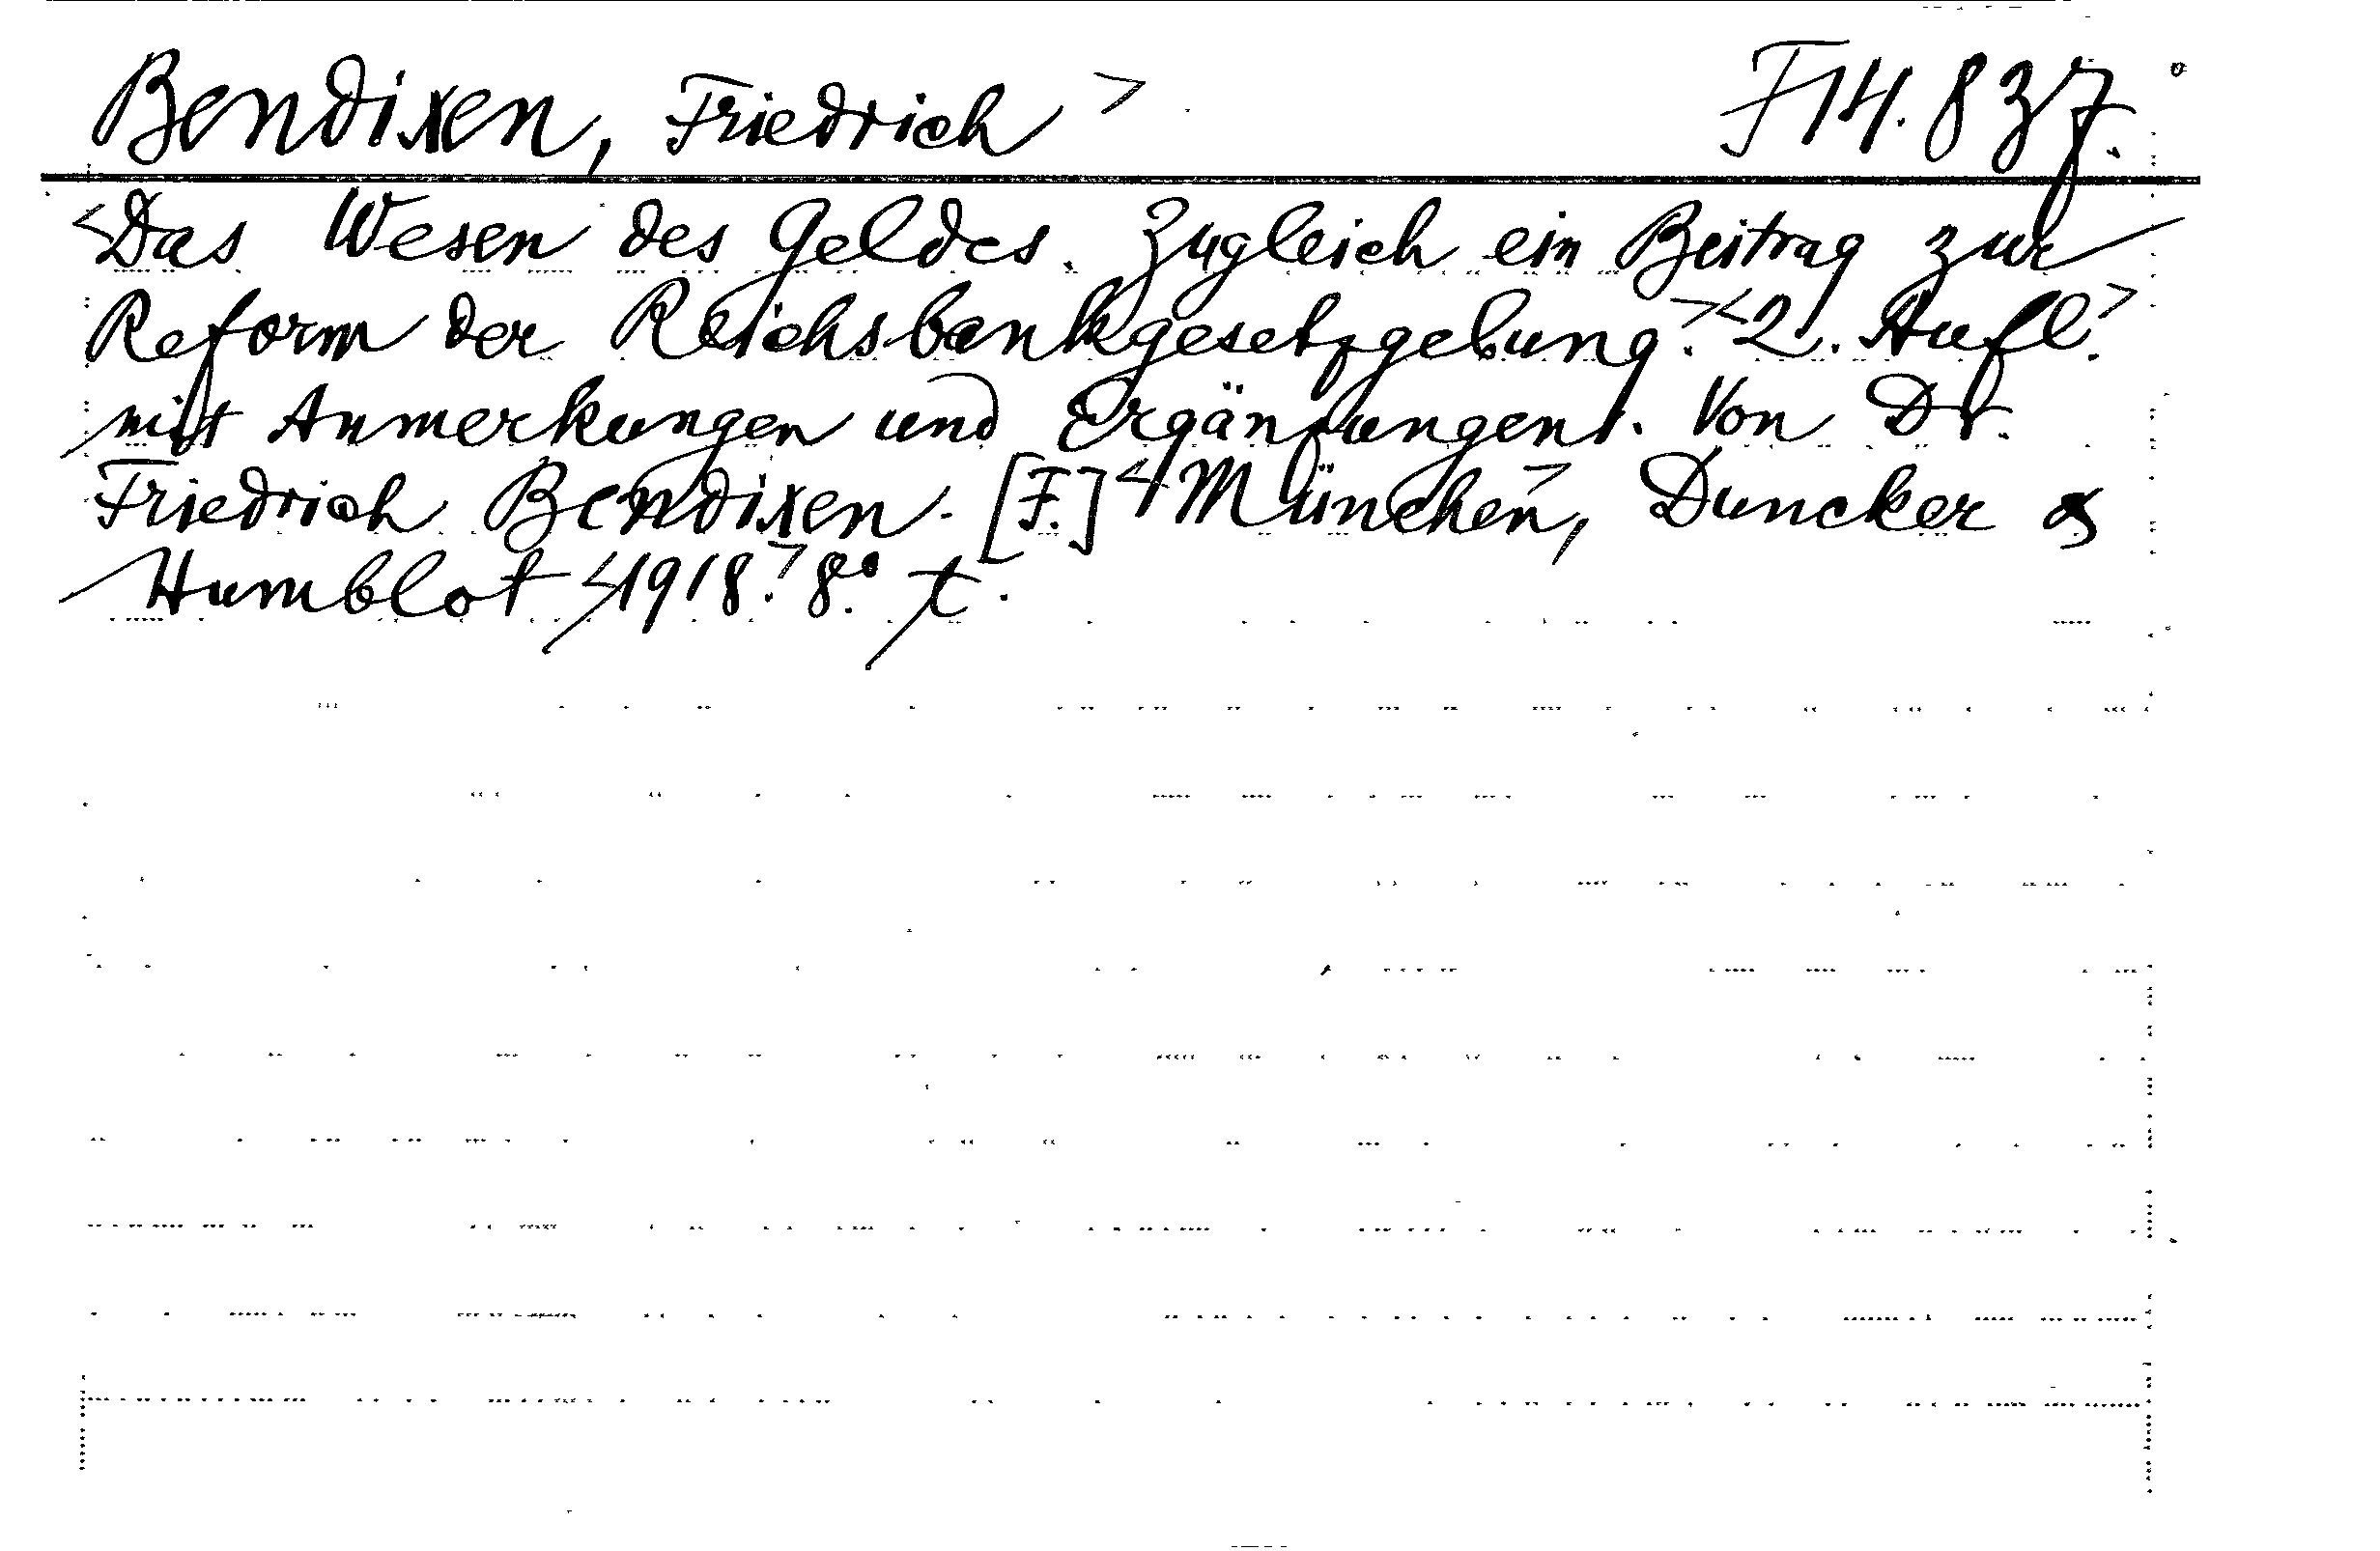 Bendixen, Friedrich> F 14.837.
<Das Wesen des Geldes. Zugleich ein Beitrag zur
Reform der Reichsbankgesetzgebung.> <2. Aufl.>
mit Anmerkungen und Ergänzungen. Von Dr.
Friedrich Bendixen. [F.] <München>, Duncker &
Humblot <1918.> 8.° t.